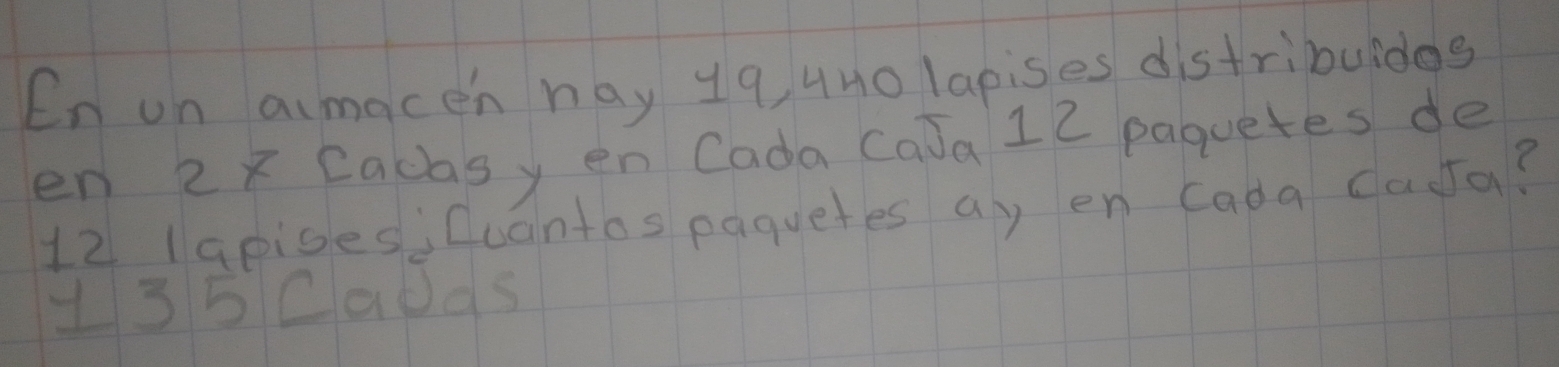 En un almacén hay 19,440 lapises distribuidos
en 2 x Cajas y en Cada Caja 12 paquetes de
12 lapises ¿Cuantos paquetes ay en Cada Caja?
135 Cajas